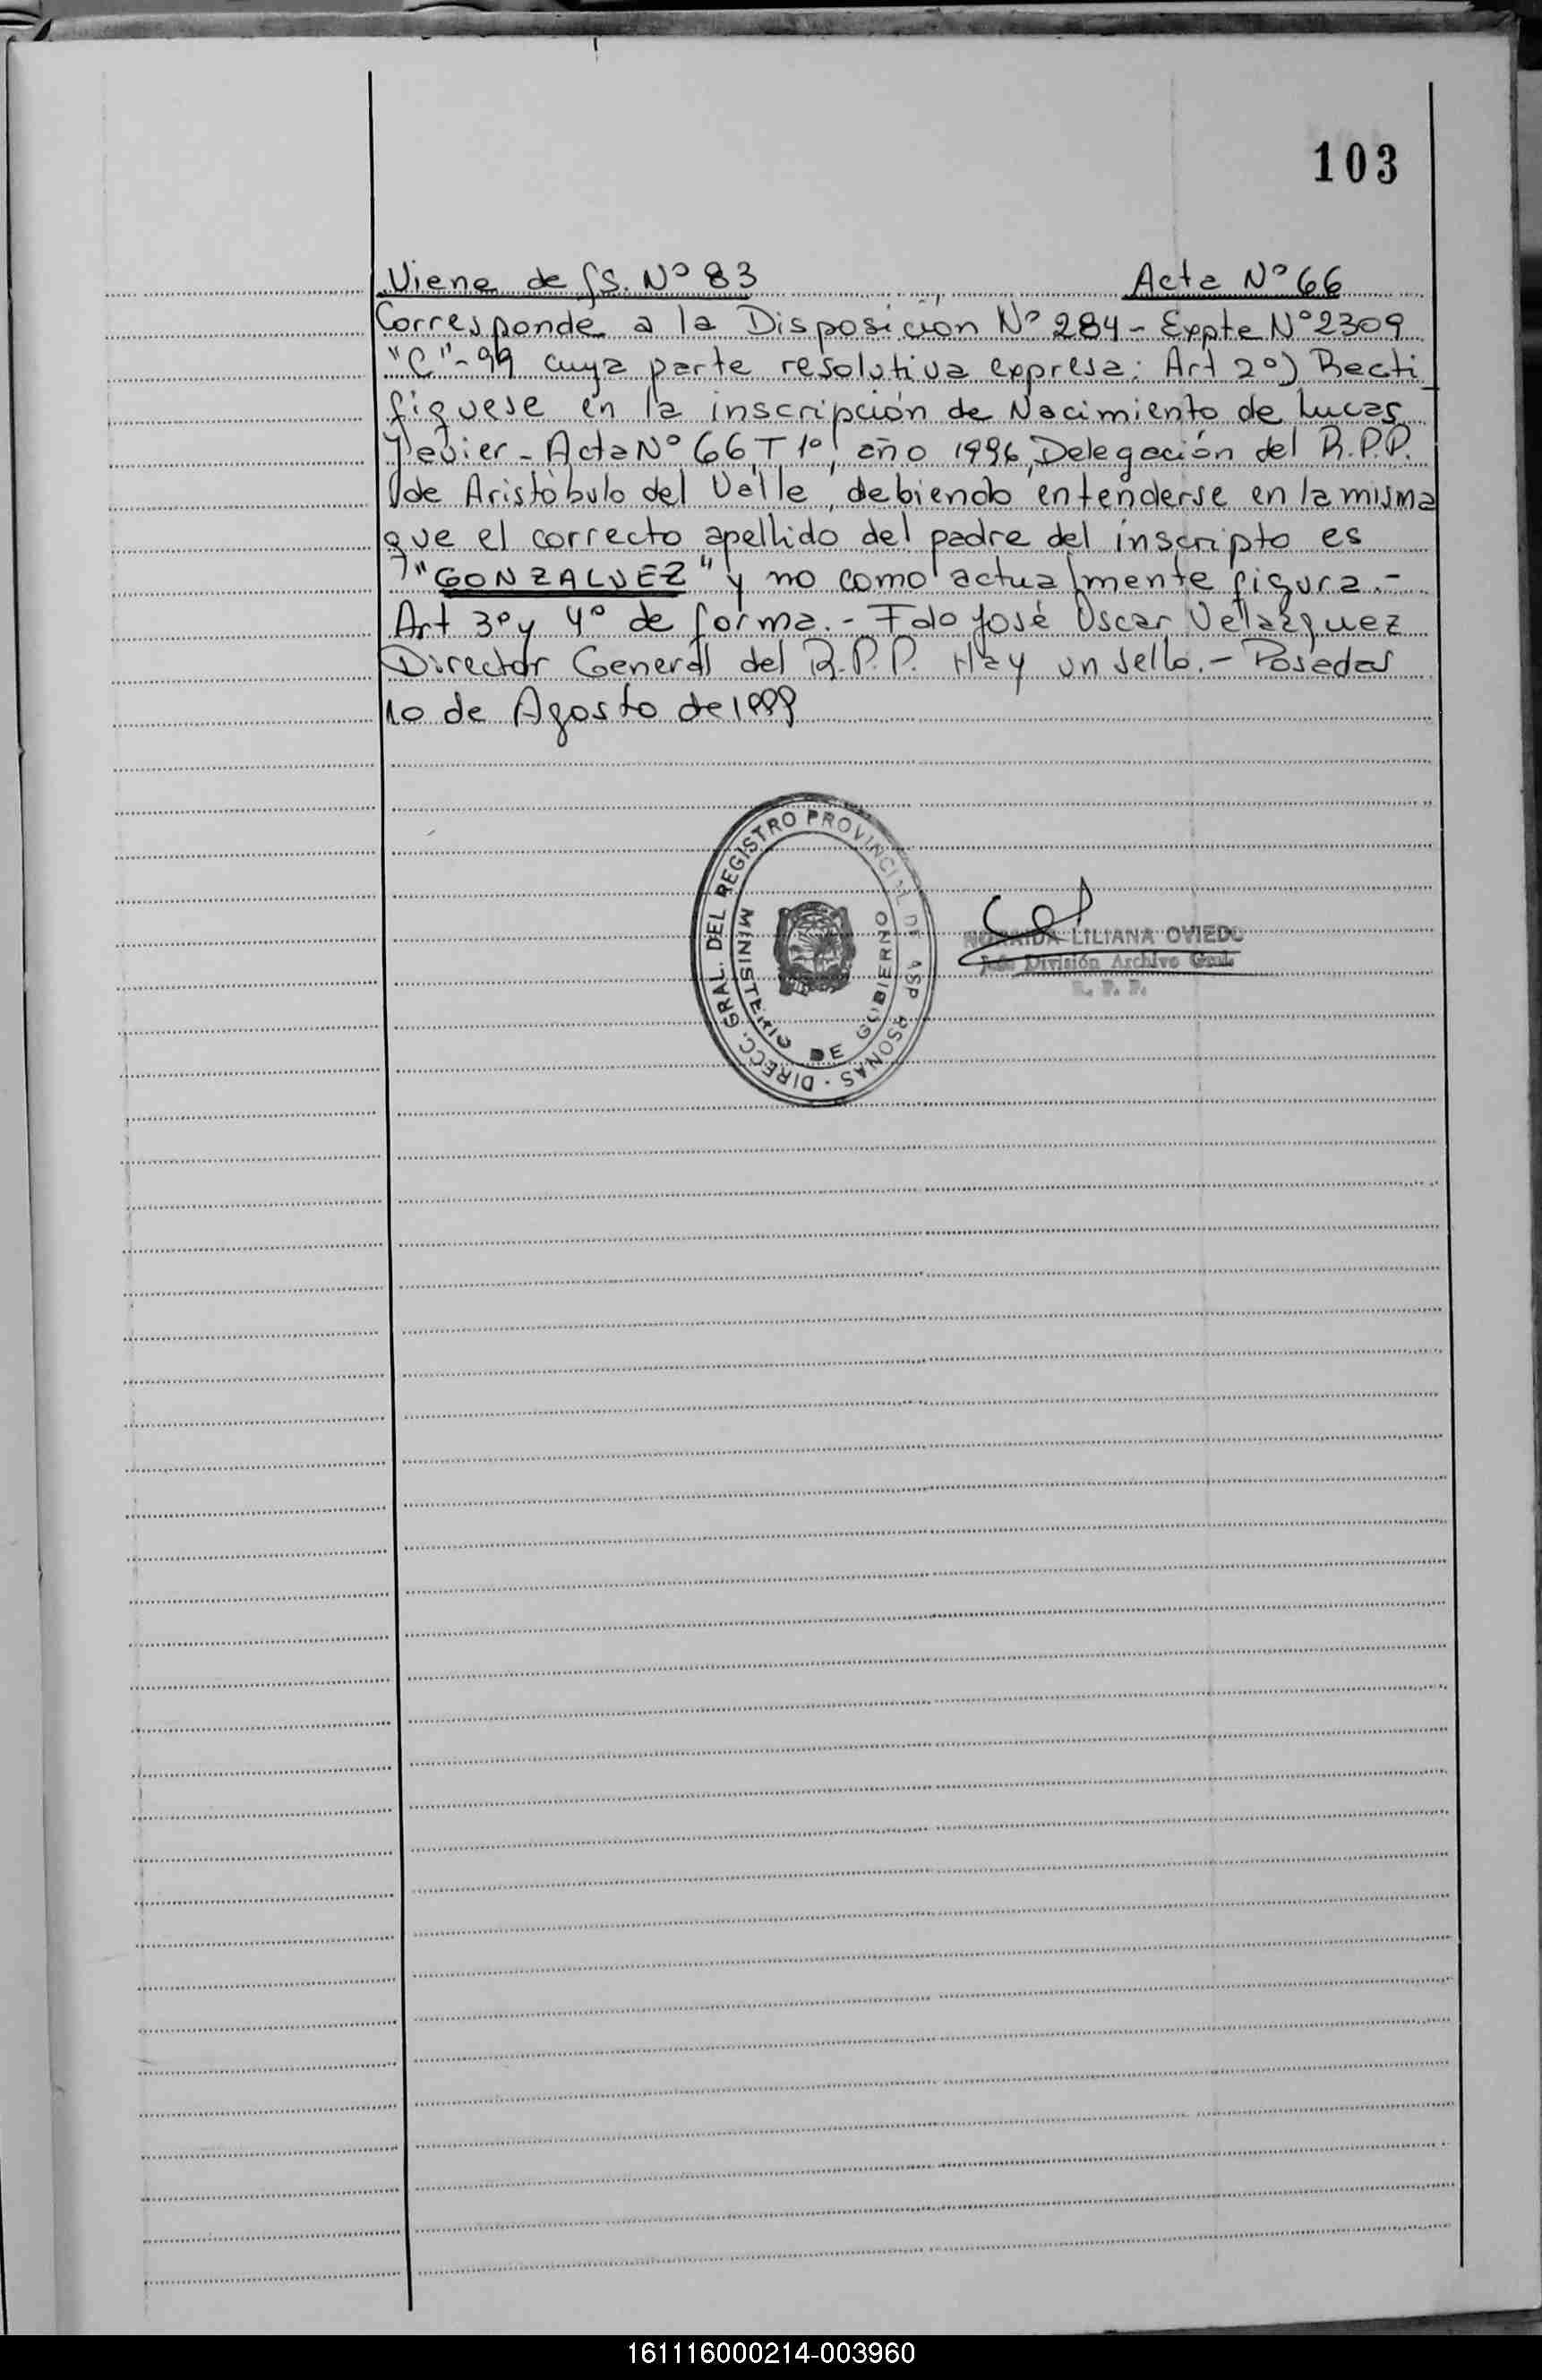 103
Viene de fs. Nº 83 Acta Nº 66
Corresponde a la Disposición Nº 284 - Expte Nº 2309
"C" - 99 cuya parte resolutiva expresa: Art 2º) Recti
fíquese en la inscripción de Nacimiento de Lucas
Javier - Acta Nº 66, T 1º, año 1996, Delegación del R.P.P.
de Aristóbulo del Valle, debiendo entenderse en la misma
que el correcto apellido del padre del inscripto es
"GONZALVEZ" y no como actualmente figura.-
Art 3º y 4º de forma.- Fdo José Oscar Velazquez
Director General del R.P.P. Hay un sello.- Posadas
10 de Agosto de 1999
DIRECC. GRAL. DEL REGISTRO PROVINCIAL DE LAS PERSONAS
MINISTERIO DE GOBIERNO
LILIANA OVIEDO
Jefe División Archivo Gral.
R. P. P.
161116000214-003960